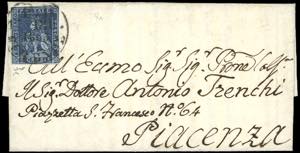 All'Ecmo Sigr. Sigr. Prone Col.mo
Il Sigr. Dottore Antonio Trenchi
Piazzetta S. Francesco No. 64
Piacenza